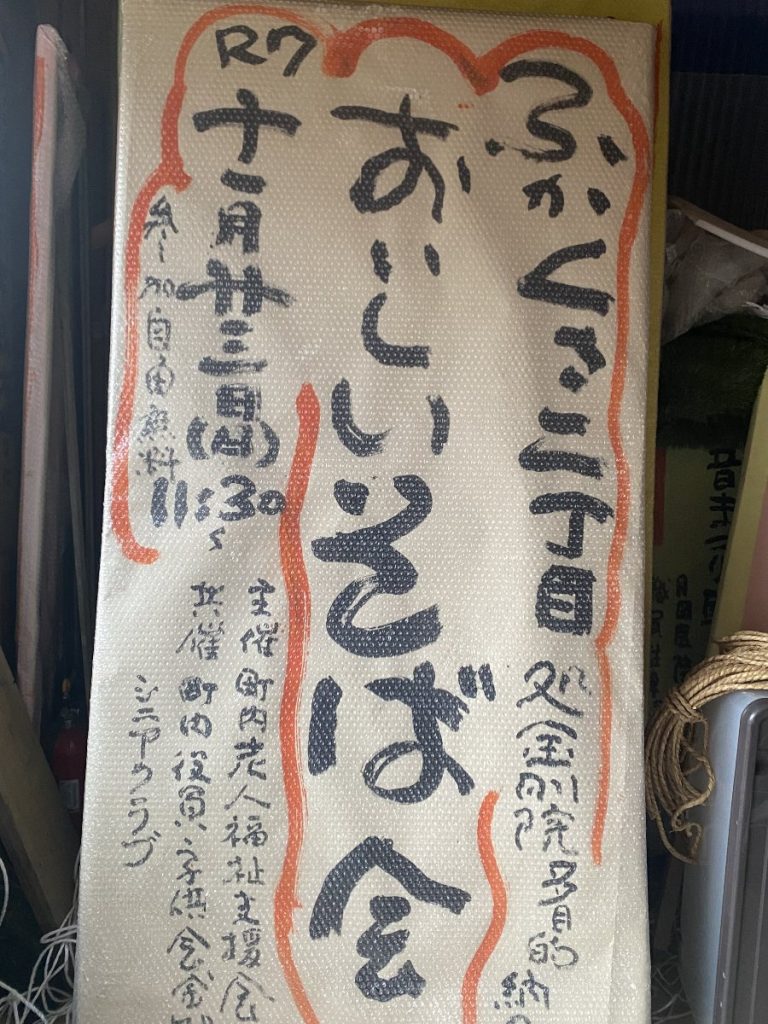 ふかくさ三丁目
処金剛院多目的納
おいしいそば会
R7
十一月廿三日(日)
11:30~
参加自由無料
主催町内老人福祉支援会
共催町内役員子供会金剛
シニアクラブ